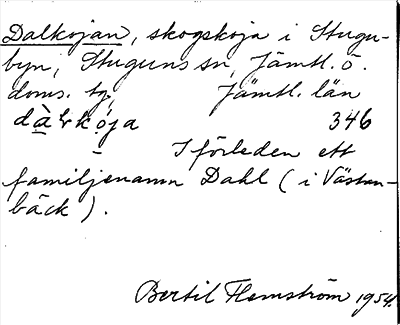 Dalkojan, skogskoja i Stugu-
byn, Stuguns sn, Jämtl. ö.
doms. tg, Jämtl. län
346
I förleden ett
familjenamn Dahl (i Västan-
bäck).
Bertil Flemström 1954.